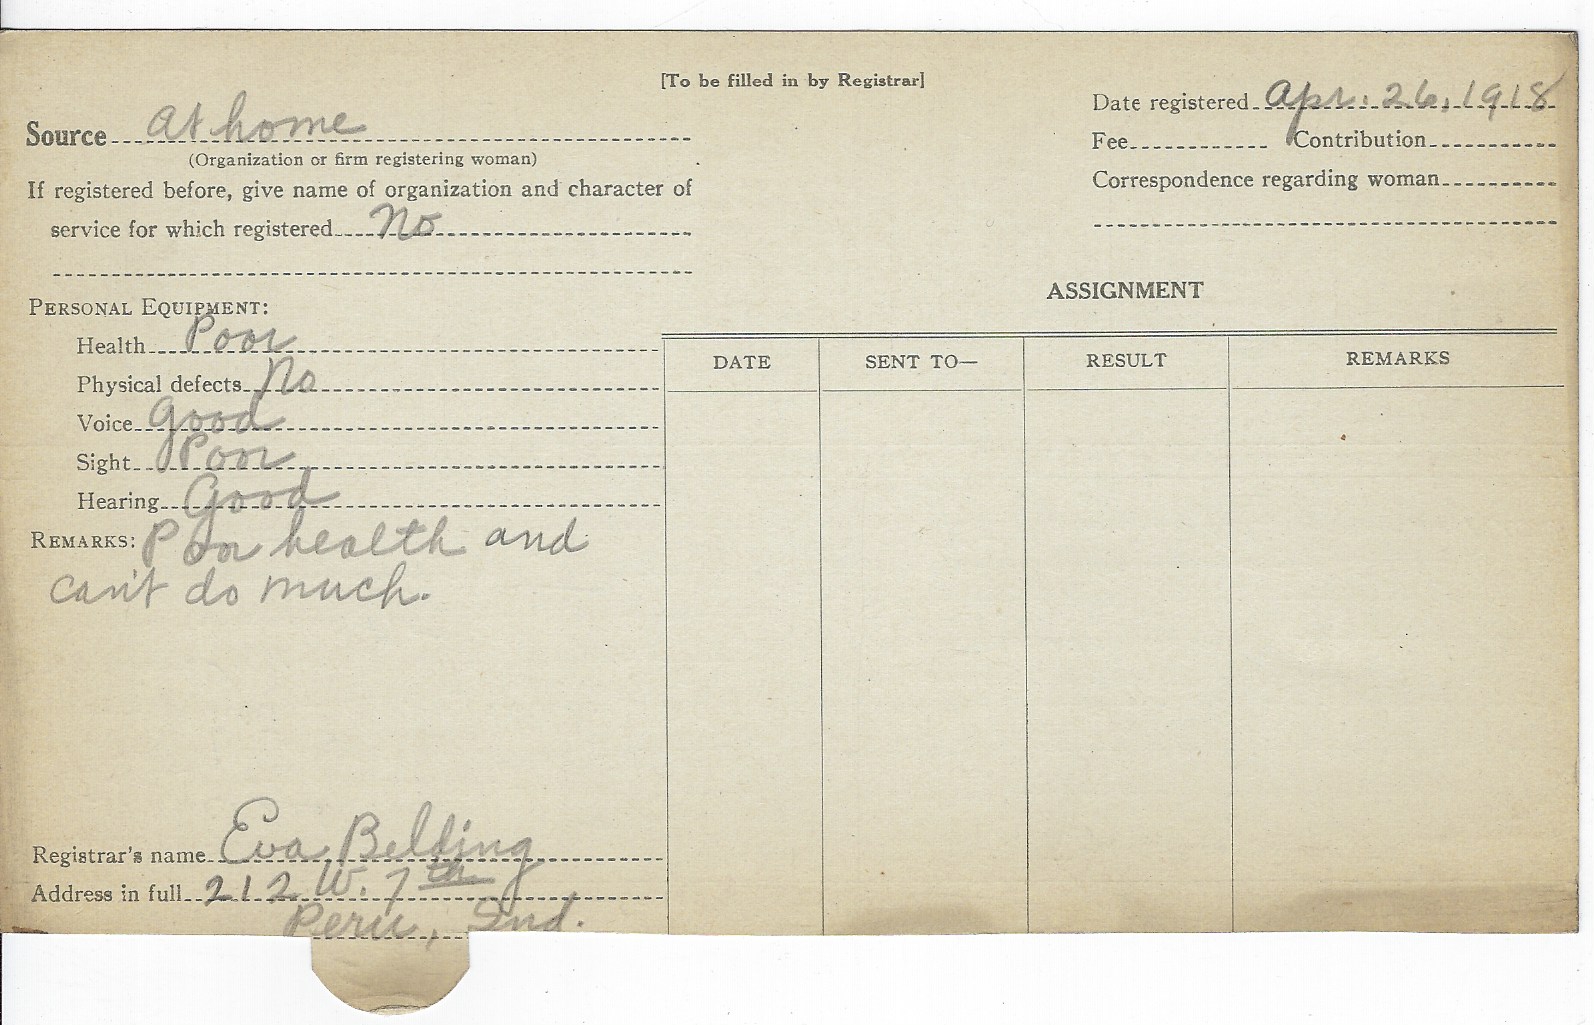 [To be filled in by Registrar]
Source At home
(Organization or firm registering woman)
If registered before, give name of organization and character of
service for which registered No
Date registered Apr. 26, 1918
Fee Contribution
Correspondence regarding woman
PERSONAL EQUIPMENT:
Health Poor
Physical defects No
Voice Good
Sight Poor
Hearing Good
REMARKS: Poor health and
can't do much.
Registrar's name Eva Belding
Address in full 212 W. 7th
Peru, Ind.
ASSIGNMENT
DATE SENT TO— RESULT REMARKS